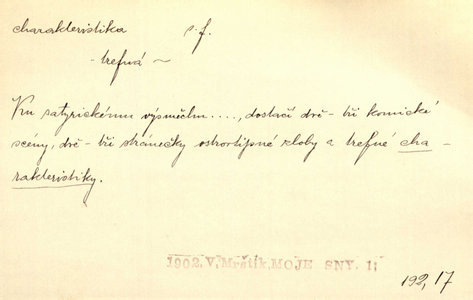 charakteristika s.f.
- trefná ~
Ku satyrickému výsměchu ...., dostačí dvě - tři komické
scény, dvě - tři stránečky ostrovtipné zloby a trefné cha-
rakteristiky.
1902, V, Mrštík, MOJE SNY. 1;
192, 17